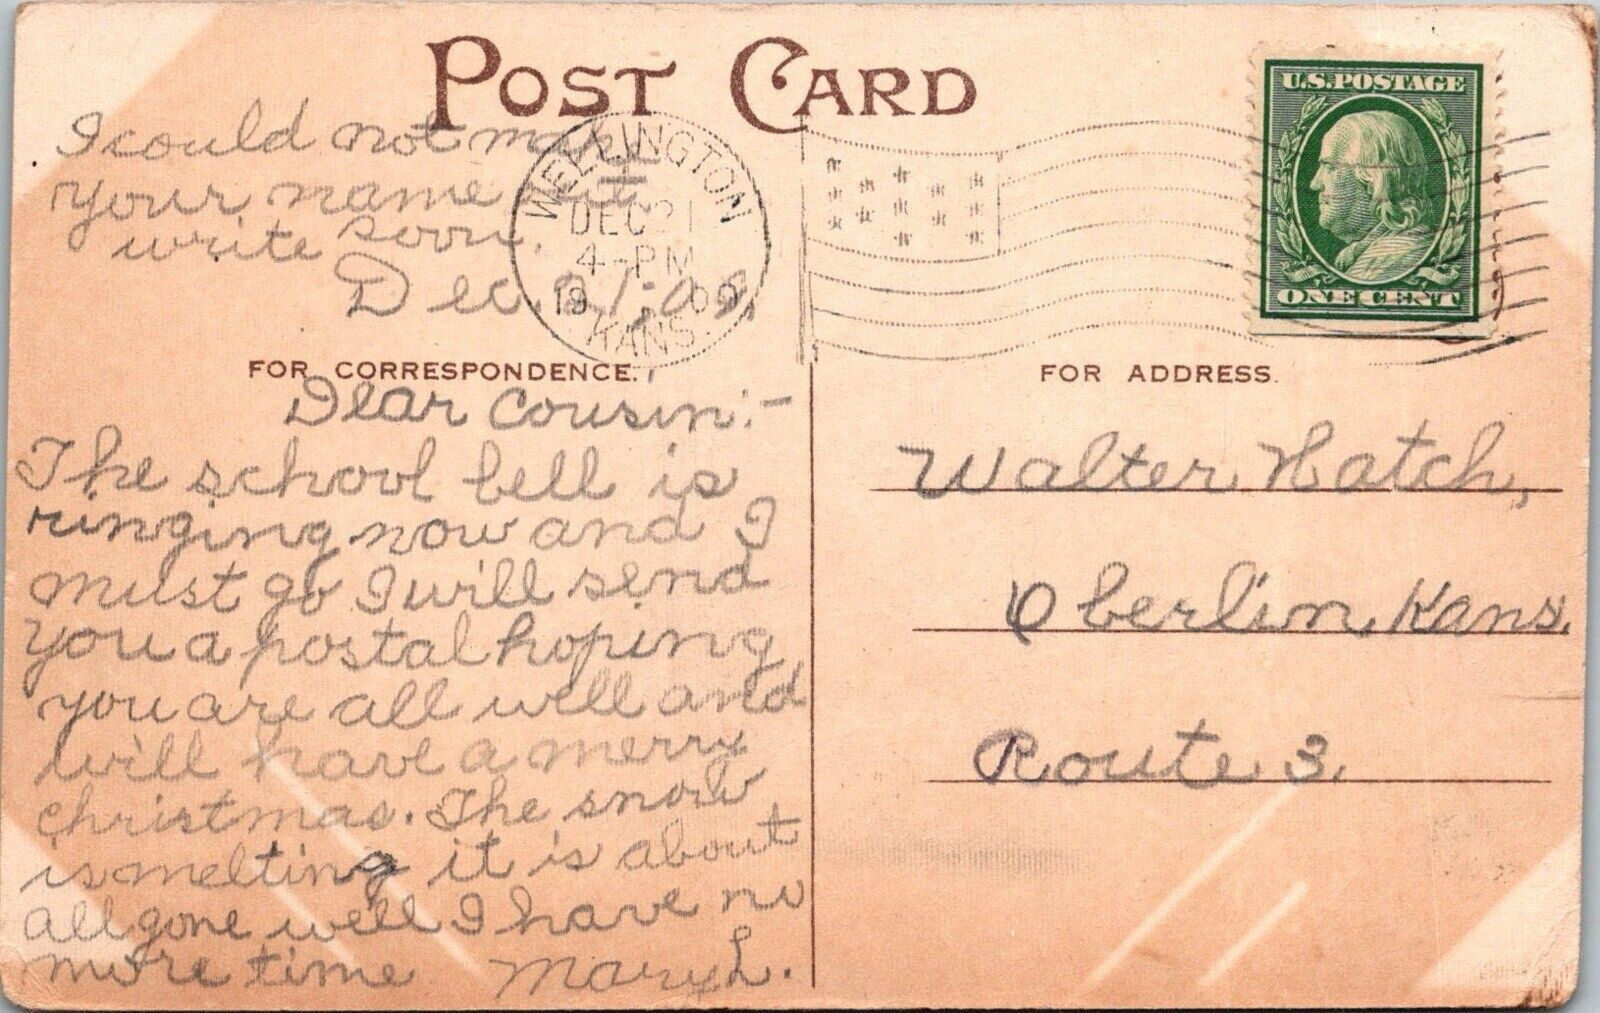 POST CARD
U.S. POSTAGE
ONE CENT
WELLINGTON
DEC 21
4-PM
1909
KANS.
I could not make
your name out.
write soon.
Dec. 21, 09.
FOR CORRESPONDENCE.
FOR ADDRESS.
Dear Cousin:-
The school bell is
ringing now and I
must go I will send
you a postal hoping
you are all well and
will have a merry
christmas. The snow
is melting it is about
all gone well I have no
more time Mary L.
Walter Hatch,
Oberlin, Kans.
Route 3.